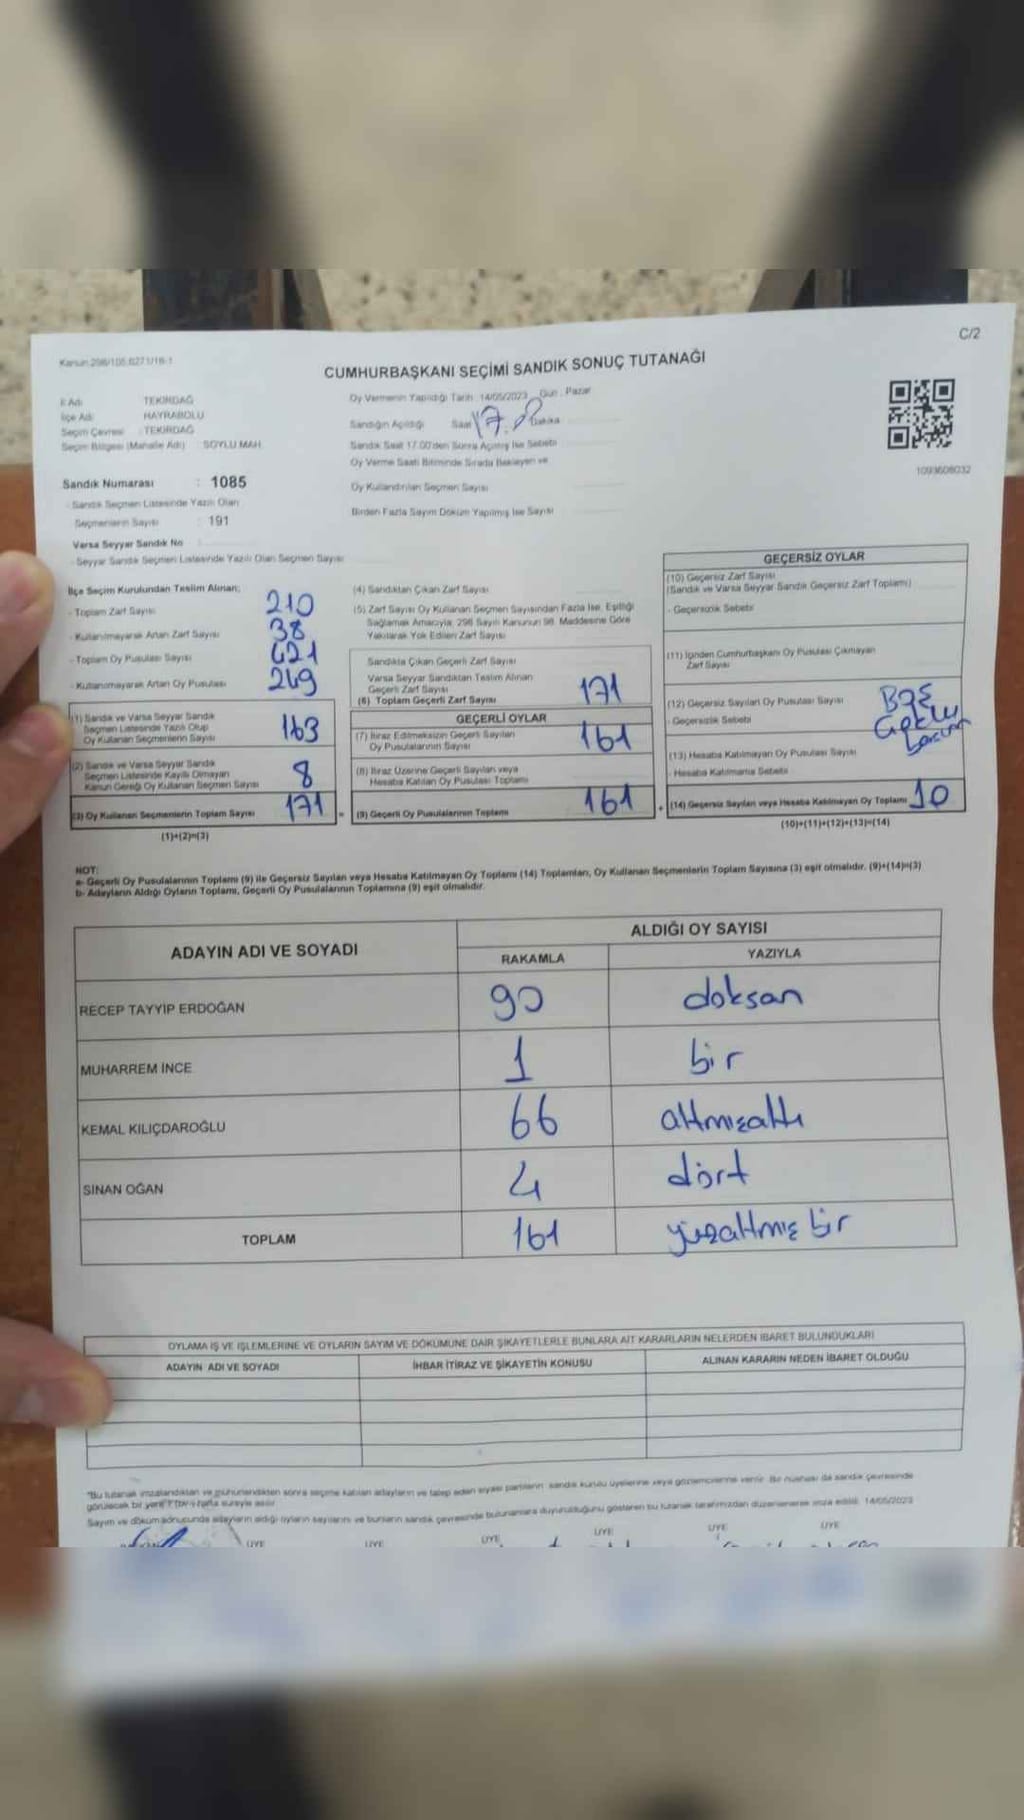 Kanun 298/105,6271/18-1
C/2
CUMHURBAŞKANI SEÇİMİ SANDIK SONUÇ TUTANAĞI
İl Adı TEKİRDAĞ
İlçe Adı HAYRABOLU
Seçim Çevresi : TEKİRDAĞ
Seçim Bölgesi (Mahalle Adı) : SOYLU MAH.
Oy Vermenin Yapıldığı Tarih : 14/05/2023 Gün : Pazar
Sandığın Açıldığı Saat 17.00 Dakika
Sandık Saat 17.00'den Sonra Açılmış İse Sebebi
Oy Verme Saati Bitiminde Sırada Bekleyen ve
Oy Kullandırılan Seçmen Sayısı
Birden Fazla Sayım Döküm Yapılmış İse Sayısı
1093608032
Sandık Numarası : 1085
- Sandık Seçmen Listesinde Yazılı Olan
Seçmenlerin Sayısı : 191
Varsa Seyyar Sandık No
- Seyyar Sandık Seçmen Listesinde Yazılı Olan Seçmen Sayısı
İlçe Seçim Kurulundan Teslim Alınan;
- Toplam Zarf Sayısı 210
- Kullanılmayarak Artan Zarf Sayısı 38
- Toplam Oy Pusulası Sayısı 421
- Kullanılmayarak Artan Oy Pusulası 249
(1) Sandık ve Varsa Seyyar Sandık
Seçmen Listesinde Yazılı Olup
Oy Kullanan Seçmenlerin Sayısı 163
(2) Sandık ve Varsa Seyyar Sandık
Seçmen Listesinde Kayıtlı Olmayan
Kanun Gereği Oy Kullanan Seçmen Sayısı 8
(3) Oy Kullanan Seçmenlerin Toplam Sayısı 171
(1)+(2)=(3)
(4) Sandıktan Çıkan Zarf Sayısı
(5) Zarf Sayısı Oy Kullanan Seçmen Sayısından Fazla İse, Eşitliği
Sağlamak Amacıyla, 298 Sayılı Kanunun 98. Maddesine Göre
Yakılarak Yok Edilen Zarf Sayısı
Sandıkta Çıkan Geçerli Zarf Sayısı
Varsa Seyyar Sandıktan Teslim Alınan
Geçerli Zarf Sayısı
(6) Toplam Geçerli Zarf Sayısı 171
GEÇERLİ OYLAR
(7) İtiraz Edilmeksizin Geçerli Sayılan
Oy Pusulalarının Sayısı 161
(8) İtiraz Üzerine Geçerli Sayılan veya
Hesaba Katılan Oy Pusulası Toplamı
= (9) Geçerli Oy Pusulalarının Toplamı 161
GEÇERSİZ OYLAR
(10) Geçersiz Zarf Sayısı
(Sandık ve Varsa Seyyar Sandık Geçersiz Zarf Toplamı)
- Geçersizlik Sebebi
(11) İçinden Cumhurbaşkanı Oy Pusulası Çıkmayan
Zarf Sayısı
(12) Geçersiz Sayılan Oy Pusulası Sayısı
- Geçersizlik Sebebi
(13) Hesaba Katılmayan Oy Pusulası Sayısı
- Hesaba Katılmama Sebebi
+ (14) Geçersiz Sayılan veya Hesaba Katılmayan Oy Toplamı 10
(10)+(11)+(12)+(13)=(14)
NOT:
a- Geçerli Oy Pusulalarının Toplamı (9) ile Geçersiz Sayılan veya Hesaba Katılmayan Oy Toplamı (14) Toplamları, Oy Kullanan Seçmenlerin Toplam Sayısına (3) eşit olmalıdır. (9)+(14)=(3)
b- Adayların Aldığı Oyların Toplamı, Geçerli Oy Pusulalarının Toplamına (9) eşit olmalıdır.
ADAYIN ADI VE SOYADI
ALDIĞI OY SAYISI
RAKAMLA YAZIYLA
RECEP TAYYİP ERDOĞAN 90 doksan
MUHARREM İNCE 1 bir
KEMAL KILIÇDAROĞLU 66 altmışaltı
SİNAN OĞAN 4 dört
TOPLAM 161 yüzaltmış bir
OYLAMA İŞ VE İŞLEMLERİNE VE OYLARIN SAYIM VE DÖKÜMÜNE DAİR ŞİKAYETLERLE BUNLARA AİT KARARLARIN NELERDEN İBARET BULUNDUKLARI
ADAYIN ADI VE SOYADI İHBAR İTİRAZ VE ŞİKAYETİN KONUSU ALINAN KARARIN NEDEN İBARET OLDUĞU
"Bu tutanak imzalandıktan ve mühürlendikten sonra seçime katılan adayların ve talep eden siyasi partilerin sandık kurulu üyelerine veya gözlemcilerine verilir. Bir nüshası da sandık çevresinde
görülecek bir yere 1 (bir) hafta süreyle asılır.
Sayım ve döküm sonucunda adayların aldığı oyların sayılarını ve bunların sandık çevresinde bulunanlara duyurulduğunu gösteren bu tutanak tarafımızdan düzenlenerek imza edildi. 14/05/2023
ÜYE ÜYE ÜYE ÜYE ÜYE ÜYE